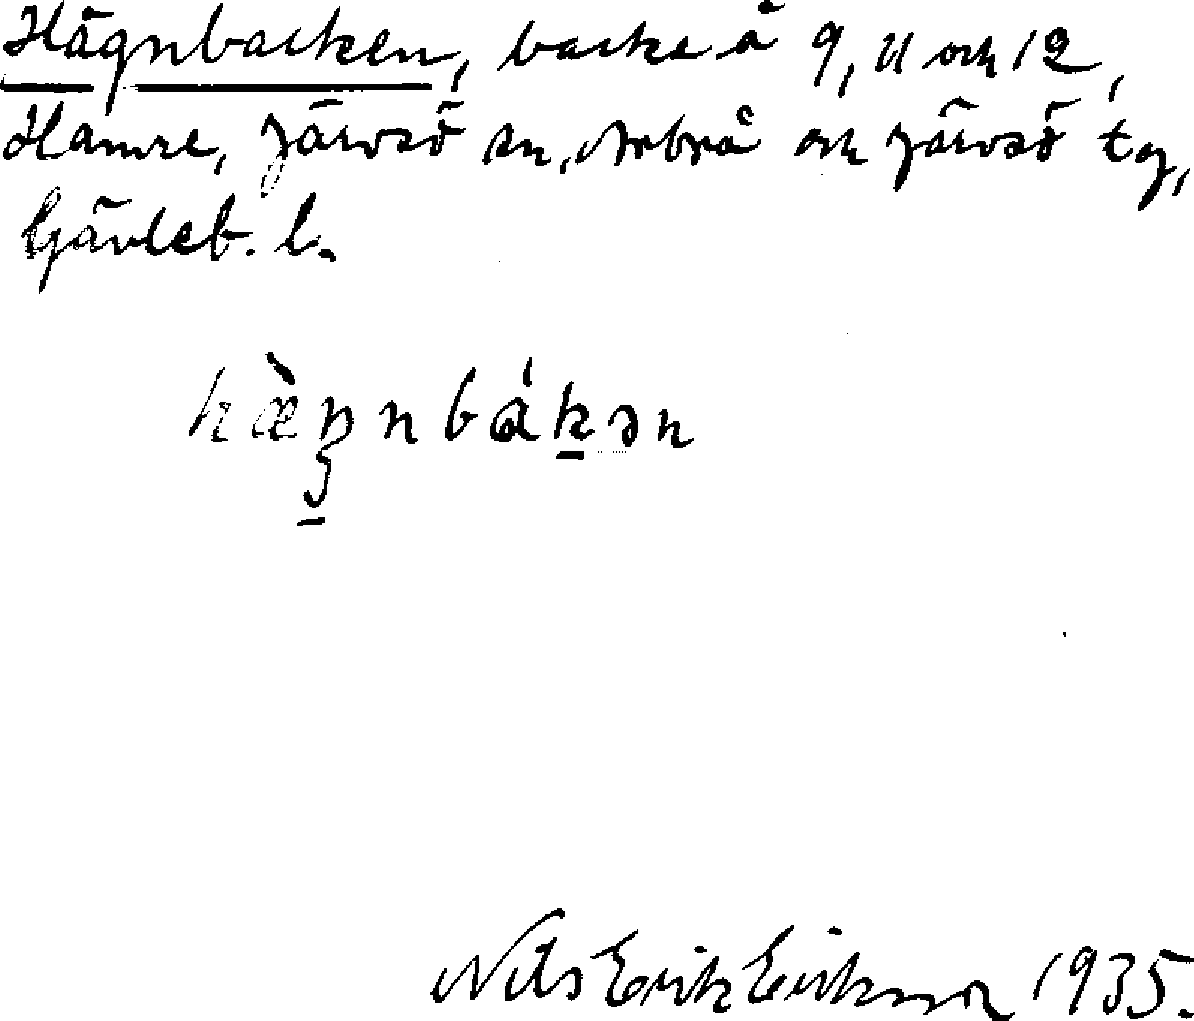 Hägnbacken, backe å 9, 11 och 12,
Hamre, Järvsö sn, Arbrå och Järvsö tg,
Gävleb. l.
hæ̀ŋnbákən
Nils Erik Eriksson 1935.